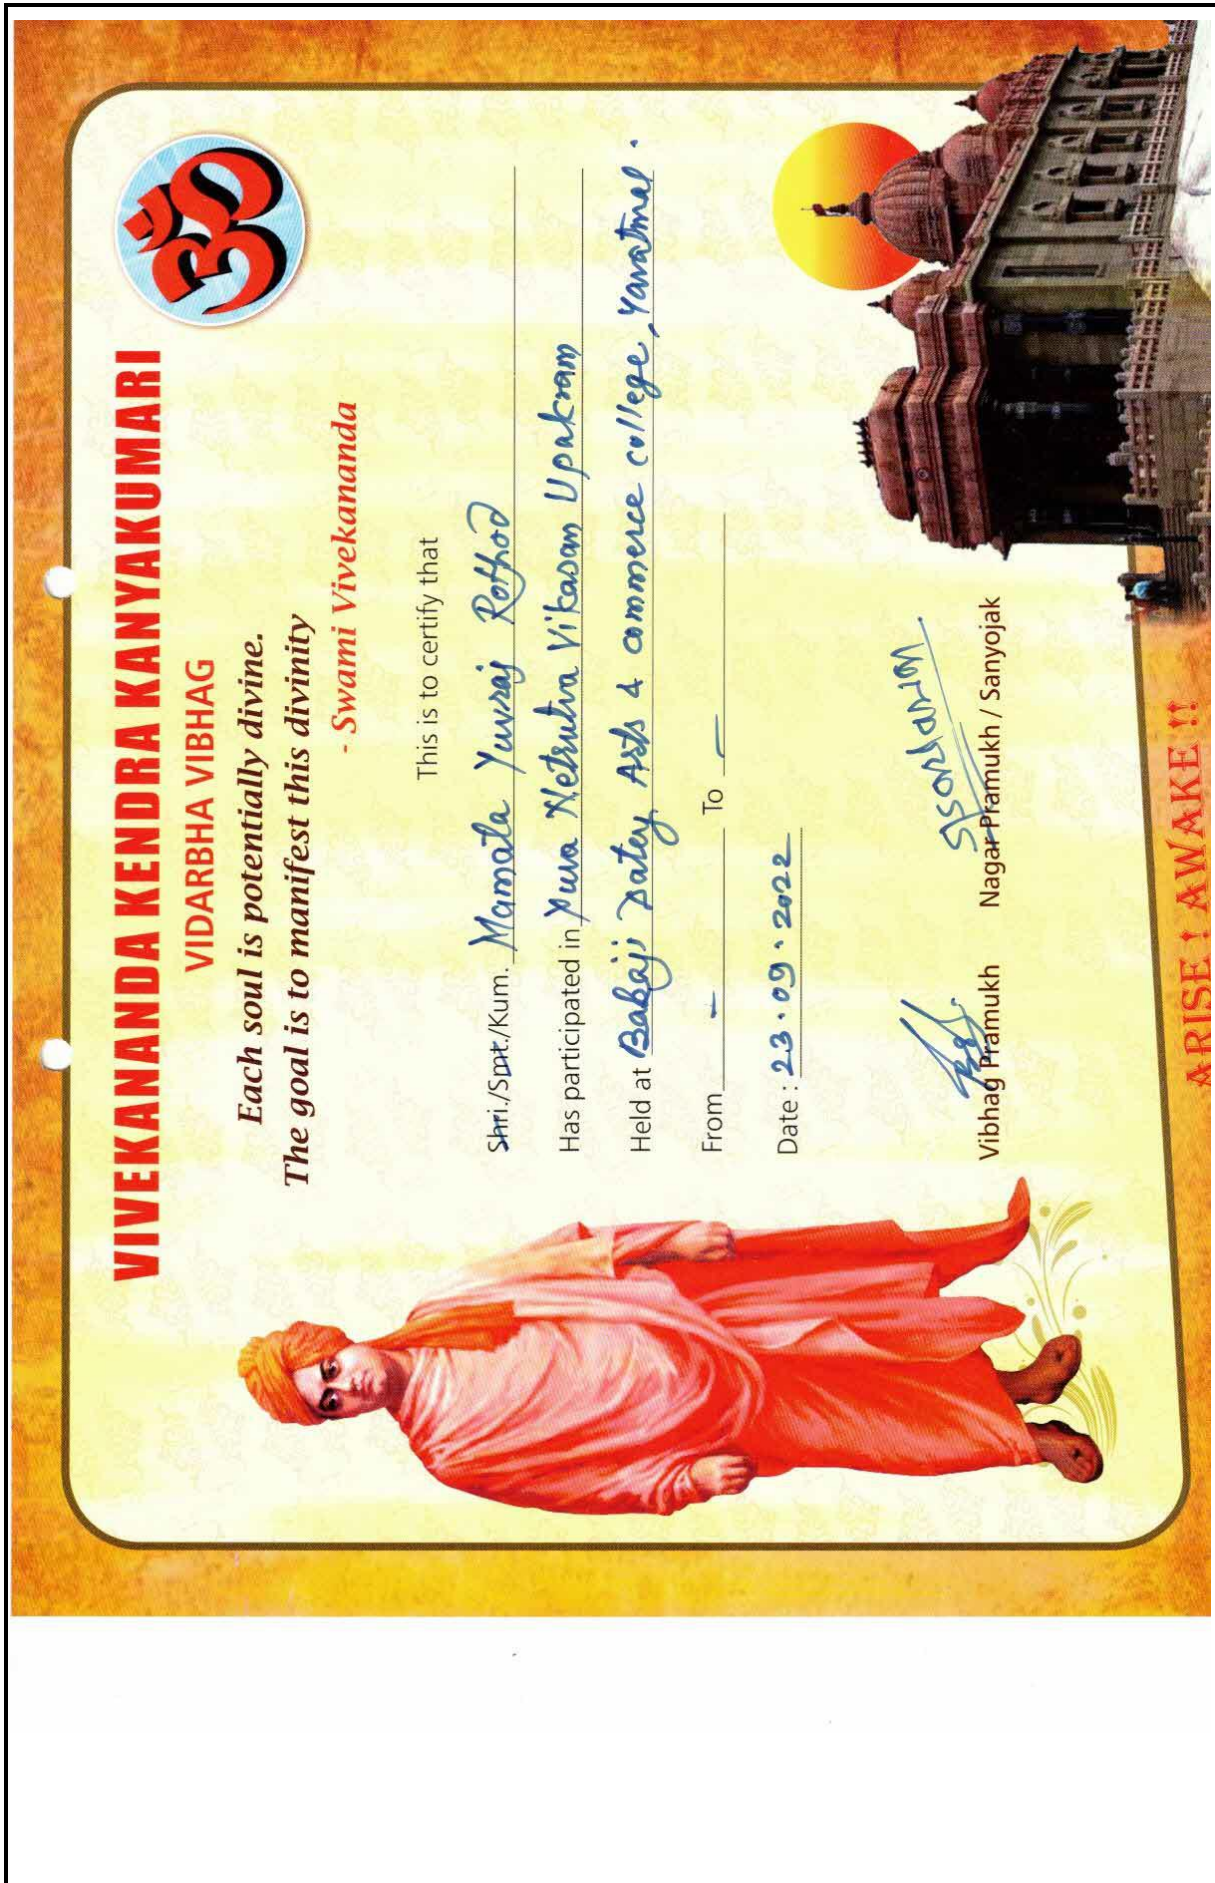 VIVEKANANDA KENDRA KANYAKUMARI
ॐ
VIDARBHA VIBHAG
Each soul is potentially divine.
The goal is to manifest this divinity
- Swami Vivekananda
This is to certify that
Shri./Smt./Kum. Mamata Yuvraj Rathod
Has participated in Yuva Netrutva Vikasan Upakram
Held at Babaji Datey Arts & commerce college, Yavatmal.
From - To -
Date : 23.09.2022
Vibhag Pramukh Nagar Pramukh / Sanyojak
ARISE ! AWAKE !!